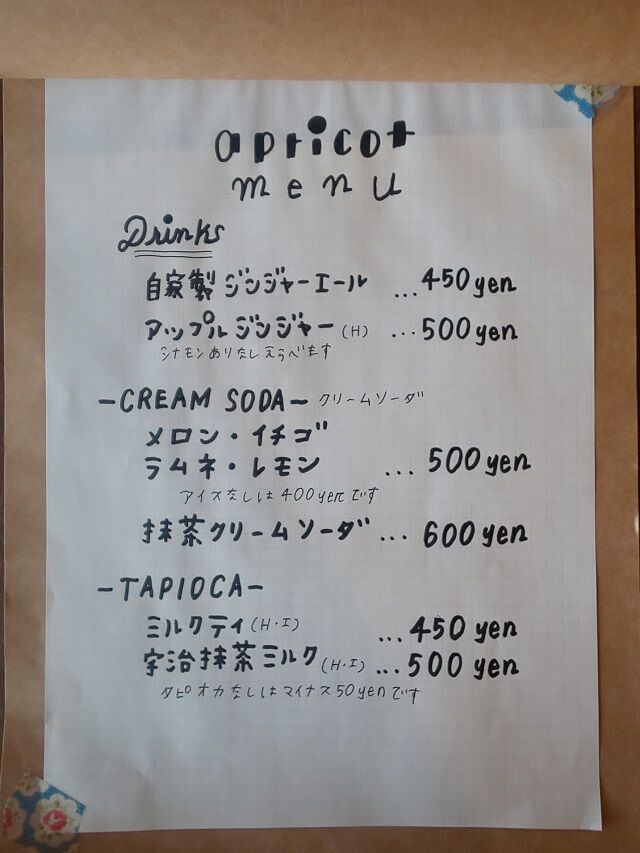 apricot
menu
Drinks
自家製 ジンジャーエール ...450yen
アップルジンジャー(H) ...500yen
シナモンありなしえらべます
-CREAM SODA- クリームソーダ
メロン・イチゴ
ラムネ・レモン ...500yen
アイスなしは400yenです
抹茶クリームソーダ...600yen
-TAPIOCA-
ミルクティ(H・I) ...450 yen
宇治抹茶ミルク(H・I)...500yen
タピオカなしはマイナス50yenです